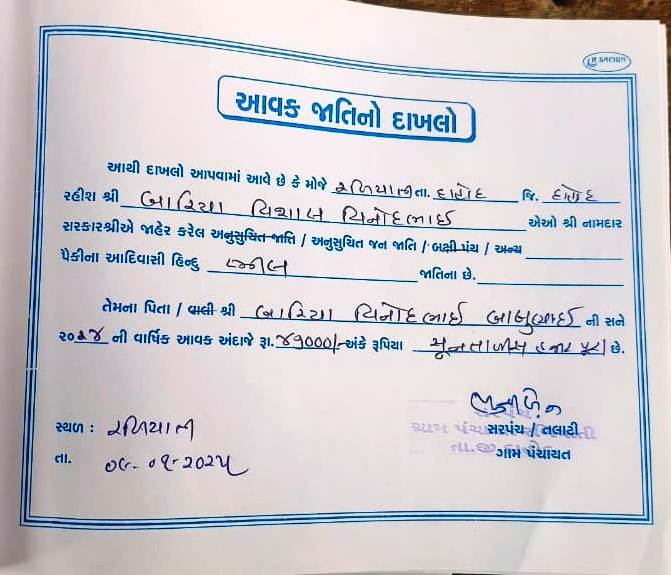 R.SACHIN
આવક જાતિનો દાખલો
આથી દાખલો આપવામાં આવે છે કે મોજે રળિયાતી તા. દાહોદ જિ. દાહોદ
રહીશ શ્રી બારિયા વિશાલ વિનોદભાઈ એઓ શ્રી નામદાર
સરકારશ્રીએ જાહેર કરેલ અનુસુચિત જાતિ / અનુસુચિત જન જાતિ / બક્ષી પંચ / અન્ય
પૈકીના આદિવાસી હિન્દુ ભીલ જાતિના છે.
તેમના પિતા / વાલી શ્રી બારિયા વિનોદભાઈ બાબુભાઈ ની સને
૨૦૨૪ ની વાર્ષિક આવક અંદાજે રૂા. ૪૭000/- અંકે રૂપિયા હજાર પૂરા છે.
સરપંચ / તલાટી
ગામ પંચાયત
સ્થળ : રળિયાતી
તા. 2025